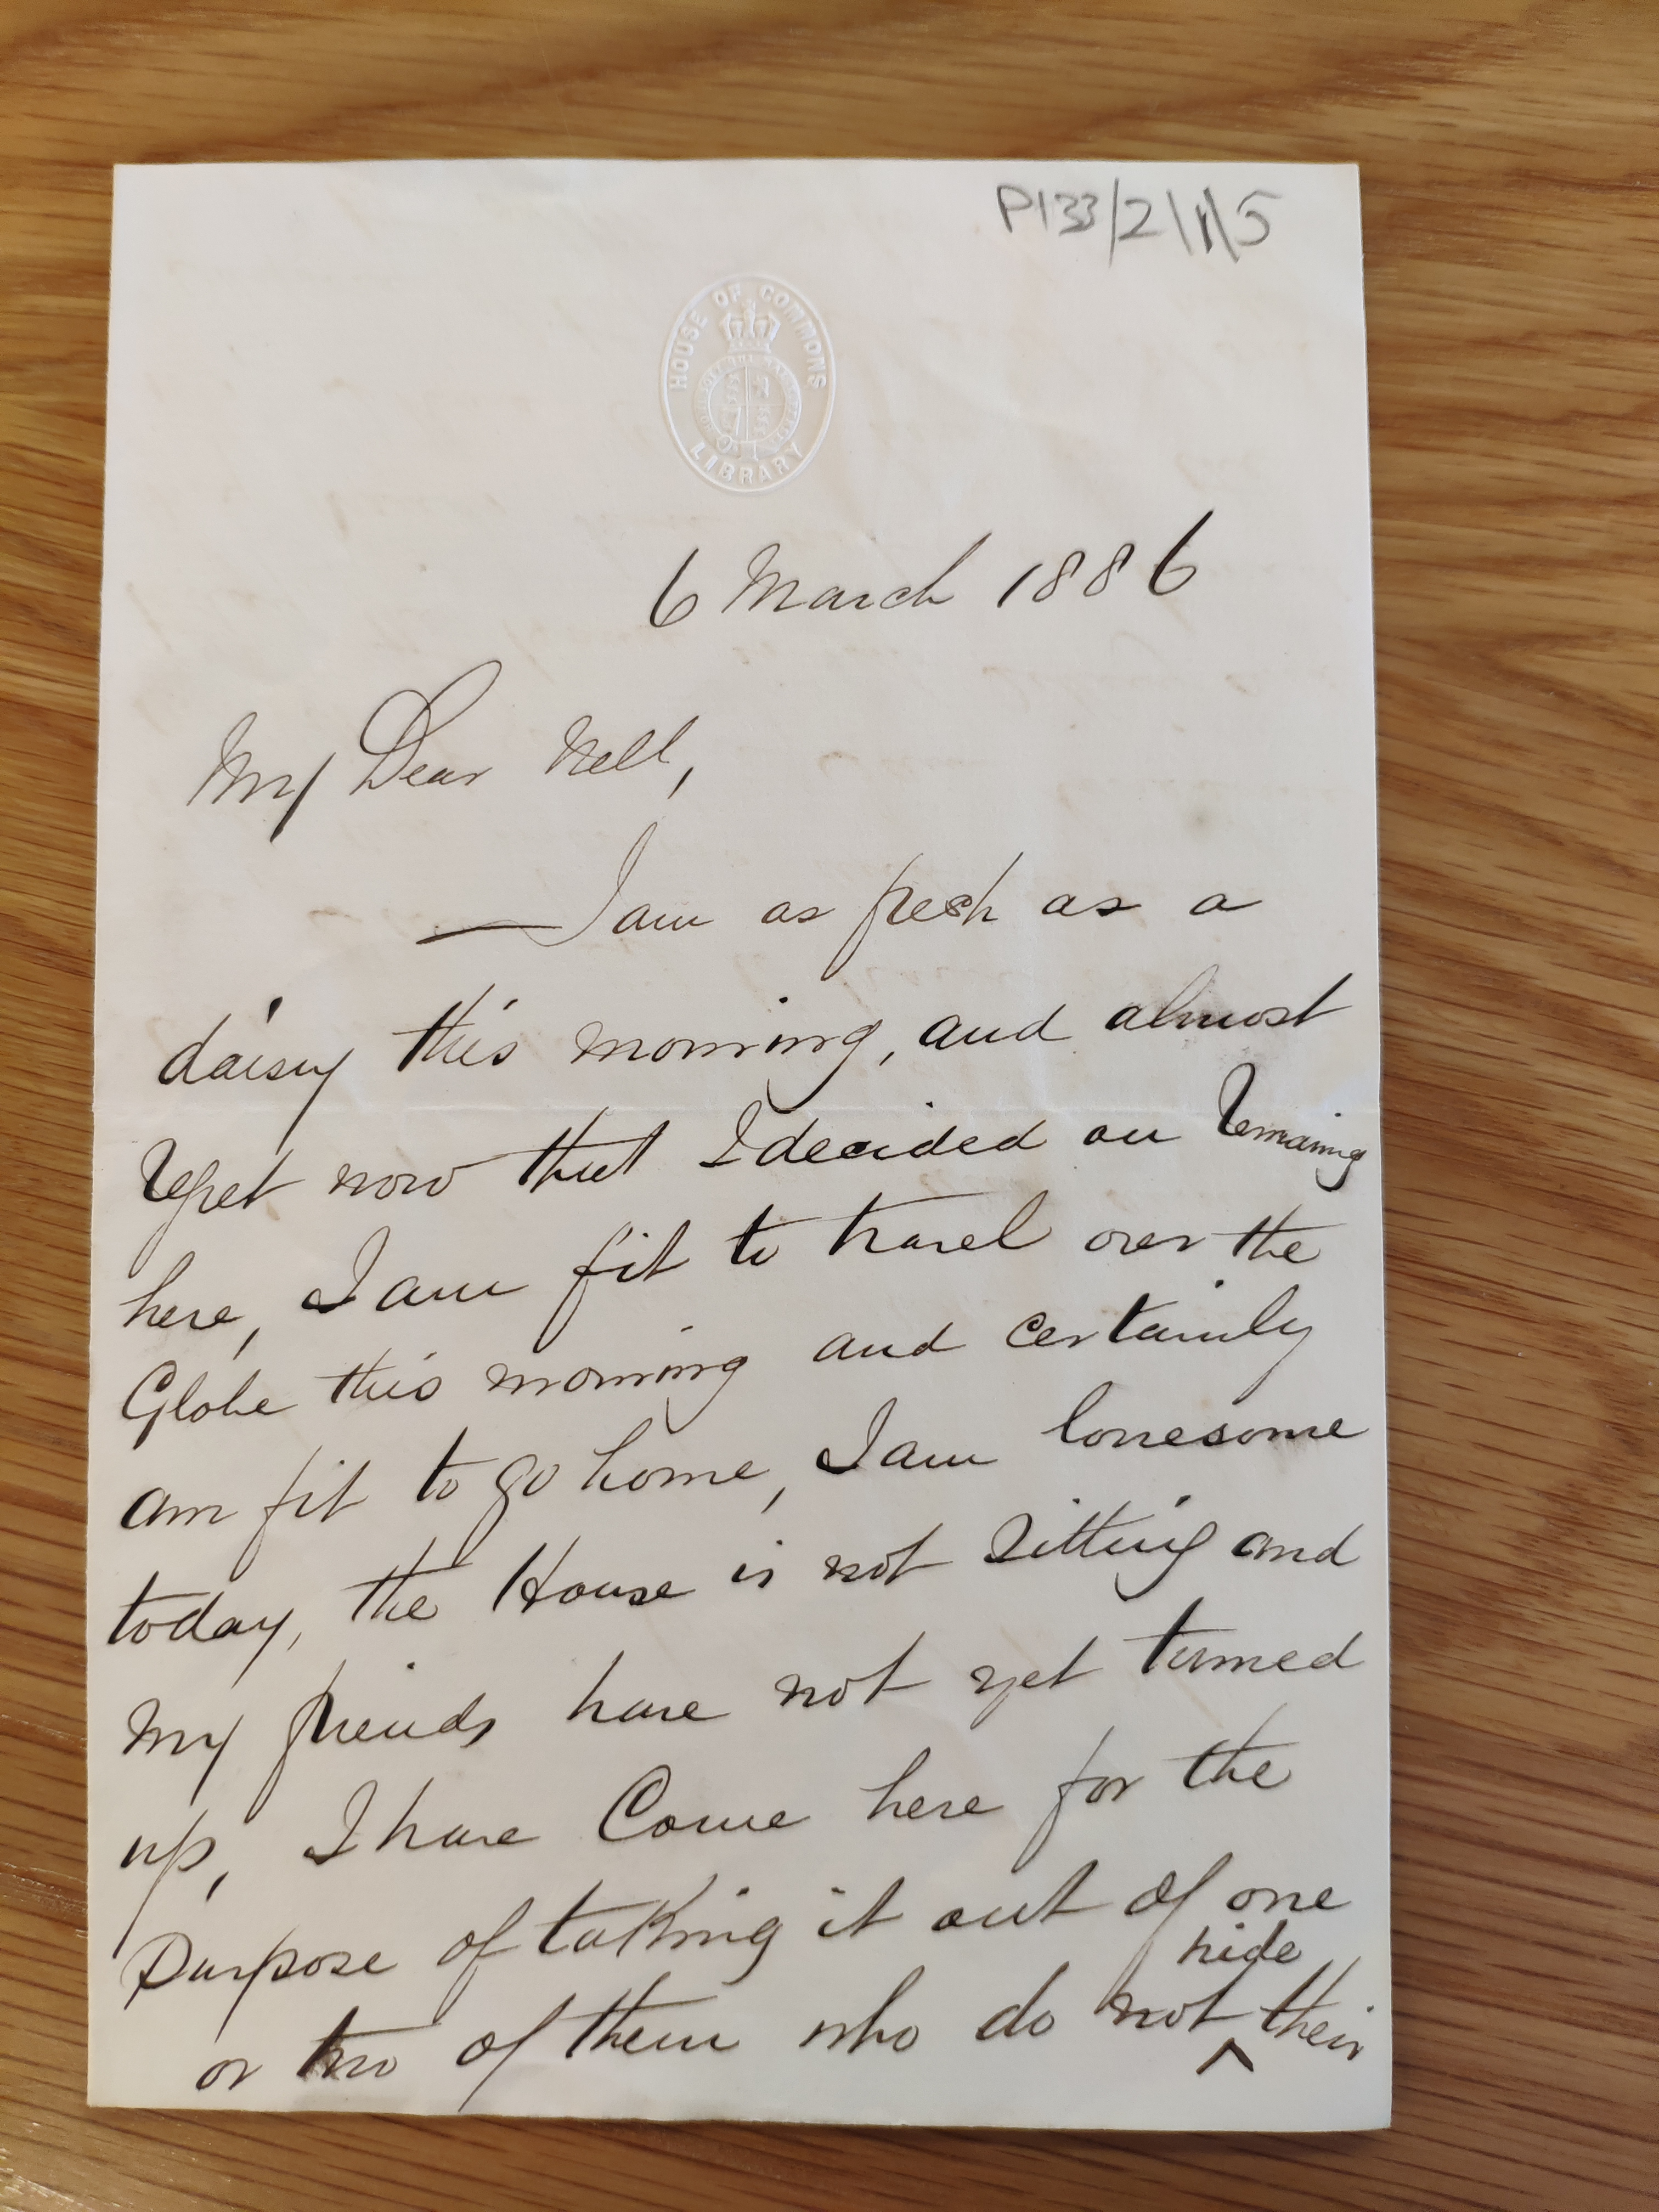 P133/2/1/5
HOUSE OF COMMONS
LIBRARY
6 March 1886
My Dear Nell,
— I am as fresh as a
daisy this morning, and almost
regret now that I decided on remaing
here, I am fit to travel over the
Globe this morning and certainly
am fit to go home, I am lonesome
today, the House is not sitting and
My friends have not yet turned
up, I have Come here for the
Purpose of taking it out of one
or two of them who do not ^hide their